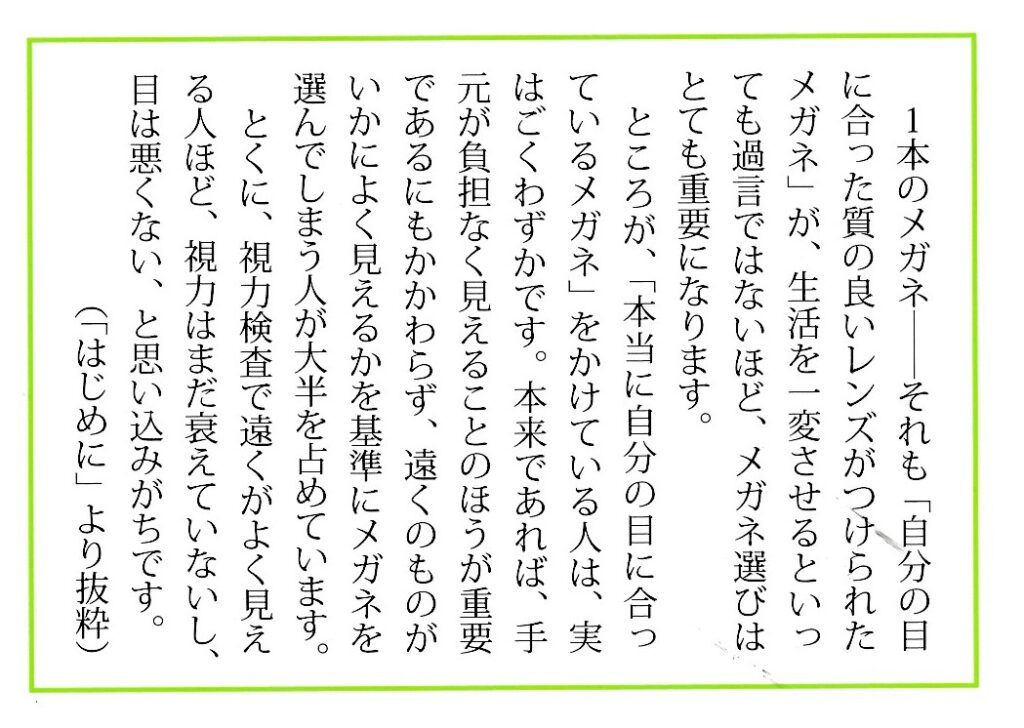 1本のメガネ――それも「自分の目
に合った質の良いレンズがつけられた
メガネ」が、生活を一変させるといっ
ても過言ではないほど、メガネ選びは
とても重要になります。
ところが、「本当に自分の目に合っ
ているメガネ」をかけている人は、実
はごくわずかです。本来であれば、手
元が負担なく見えることのほうが重要
であるにもかかわらず、遠くのものが
いかによく見えるかを基準にメガネを
選んでしまう人が大半を占めています。
とくに、視力検査で遠くがよく見え
る人ほど、視力はまだ衰えていないし、
目は悪くない、と思い込みがちです。
(「はじめに」より抜粋)